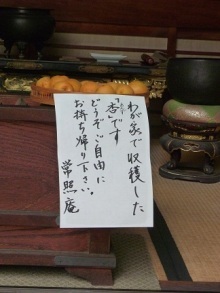 わが家で収穫した
「杏」です
どうぞご自由に
お持ち帰り下さい。
常照庵